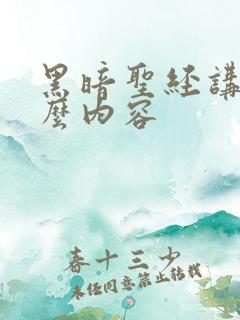 黑暗聖经講
麼内容
春十三少
未经同意禁止转载